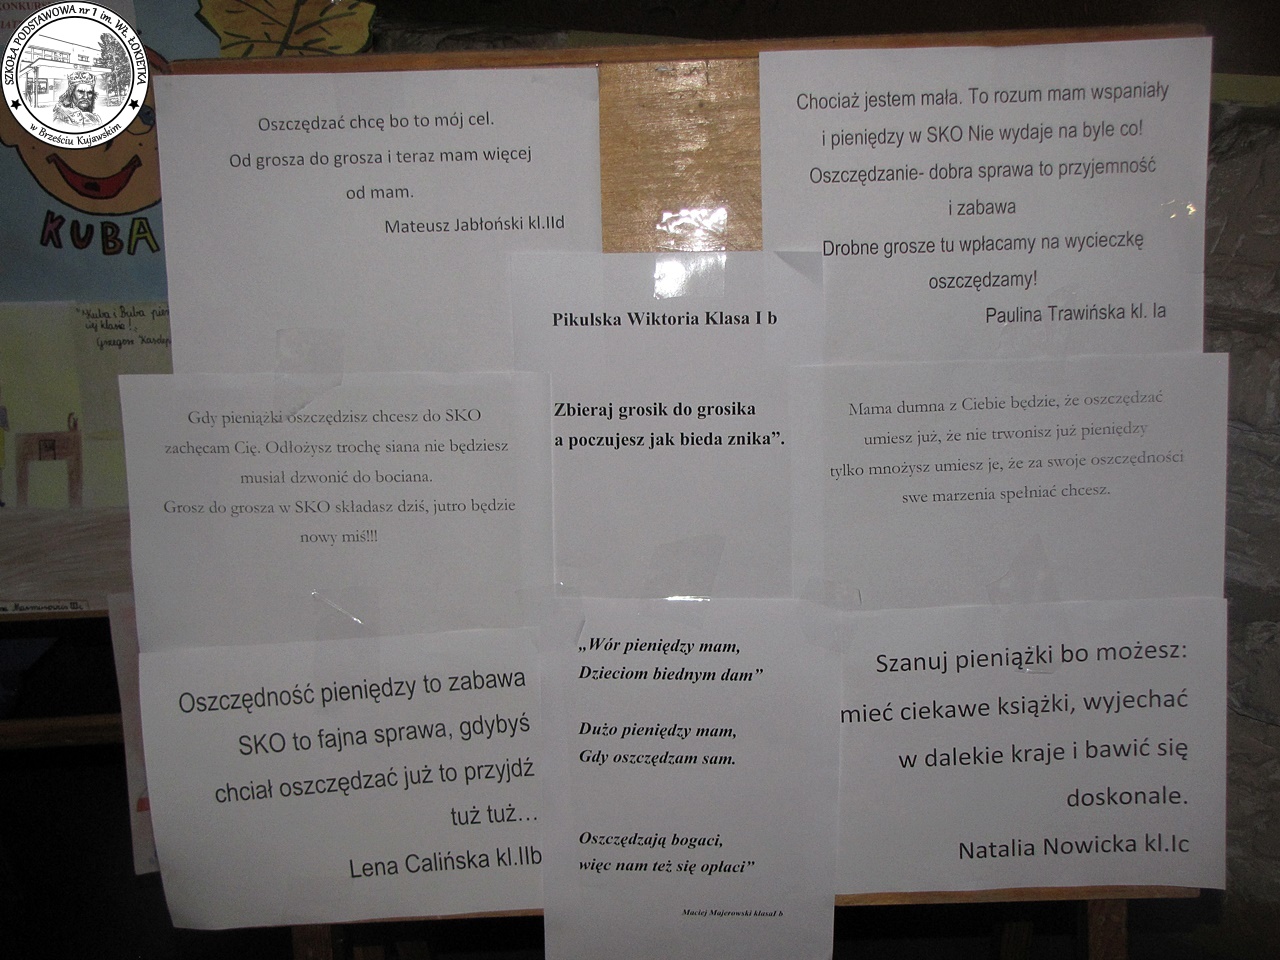 SZKOŁA PODSTAWOWA nr 1 im. WŁ. ŁOKIETKA
w Brześciu Kujawskim
KUBA
"Kuba i Buba
Oszczędzać chcę bo to mój cel.
Od grosza do grosza i teraz mam więcej
od mam.
Mateusz Jabłoński kl.IId
Chociaż jestem mała. To rozum mam wspaniały
i pieniędzy w SKO Nie wydaje na byle co!
Oszczędzanie- dobra sprawa to przyjemność
i zabawa
Drobne grosze tu wpłacamy na wycieczkę
oszczędzamy!
Paulina Trawińska kl. Ia
Pikulska Wiktoria Klasa I b
Zbieraj grosik do grosika
a poczujesz jak bieda znika”.
Gdy pieniążki oszczędzisz chcesz do SKO
zachęcam Cię. Odłożysz trochę siana nie będziesz
musiał dzwonić do bociana.
Grosz do grosza w SKO składasz dziś, jutro będzie
nowy miś!!!
Mama dumna z Ciebie będzie, że oszczędzać
umiesz już, że nie trwonisz już pieniędzy
tylko mnożysz umiesz je, że za swoje oszczędności
swe marzenia spełniać chcesz.
Oszczędność pieniędzy to zabawa
SKO to fajna sprawa, gdybyś
chciał oszczędzać już to przyjdź
tuż tuż…
Lena Calińska kl.IIb
„Wór pieniędzy mam,
Dzieciom biednym dam”
Dużo pieniędzy mam,
Gdy oszczędzam sam.
Oszczędzają bogaci,
więc nam też się opłaci”
Maciej Majerowski klasaI b
Szanuj pieniążki bo możesz:
mieć ciekawe książki, wyjechać
w dalekie kraje i bawić się
doskonale.
Natalia Nowicka kl.Ic